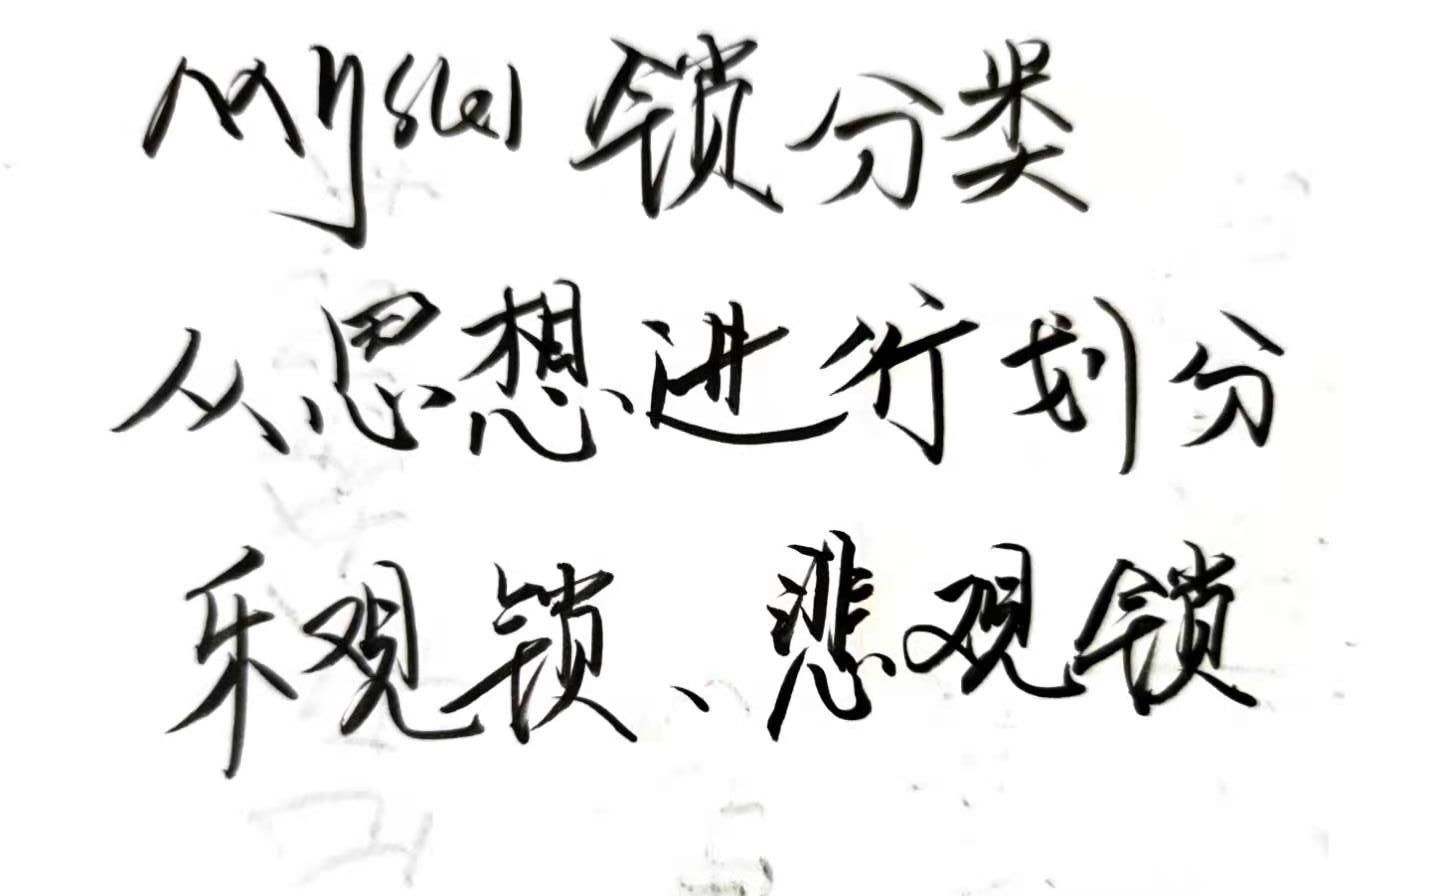 mysql 锁分类
从思想进行划分
乐观锁、悲观锁